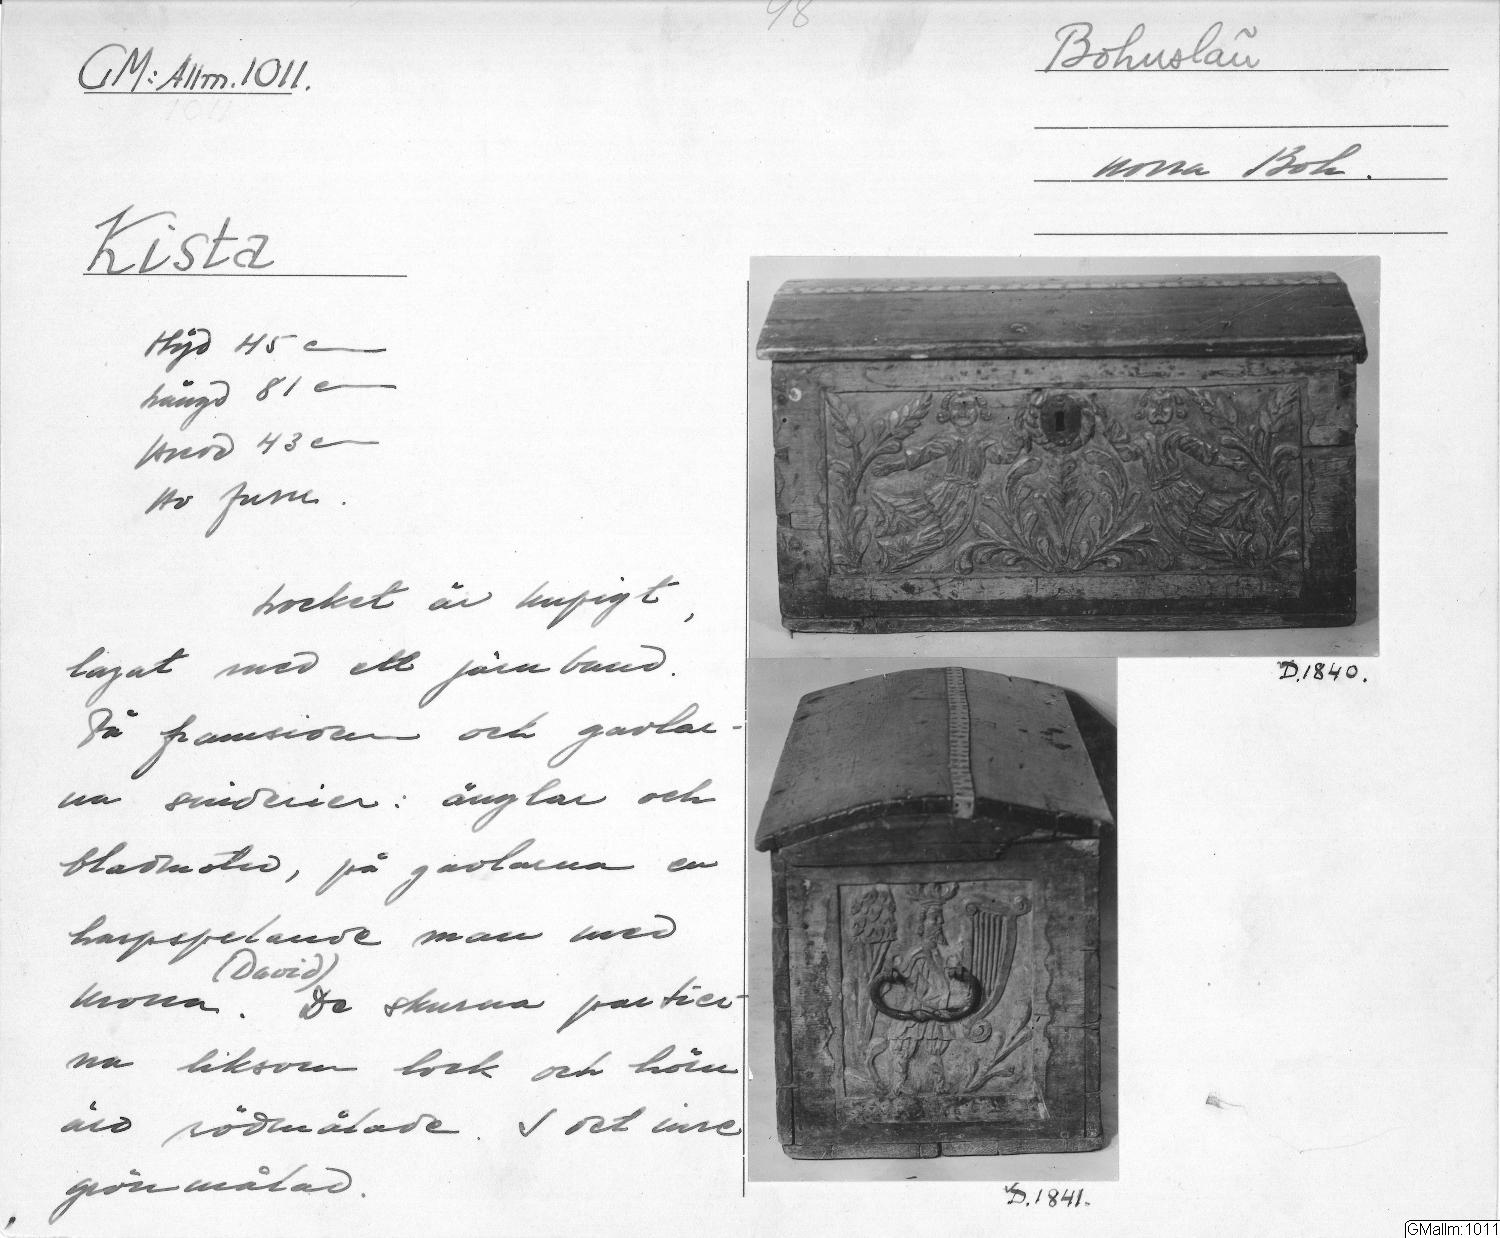 98
GM: Allm. 1011.
1011
Bohuslän
norra Boh.
Kista
Höjd 45 cm
Längd 81 cm
Bredd 43 cm
Av furu.
Locket är kupigt,
lagat med ett järnband.
På framsidan och gavlar-
na sniderier: änglar och
bladmotiv, på gavlarna en
harpspelande man med
(David)
krona. De skurna partier-
na liksom lock och hörn
äro rödmålade. I det inre
grönmålad.
D.1840.
D.1841.
GMallm:1011